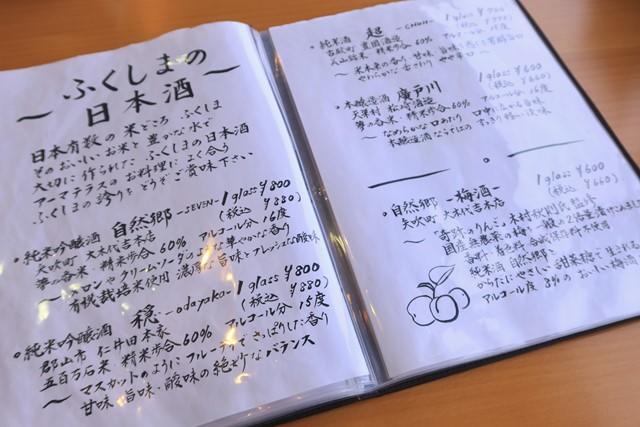 〜ふくしまの
日本酒〜
日本有数の米どころ ふくしま
そのおいしいお米と豊かな水で
大切に作られた ふくしまの日本酒
アーマテラスのお料理によく合う
ふくしまの誇りをどうぞご賞味下さい
○純米吟醸酒 自然郷 -SEVEN- 1glass ¥800
矢吹町 大木代吉本店 (税込 ¥880)
夢の香米・精米歩合60% アルコール分16度
〜メロンやクリームソーダのような華やかな香り
有機栽培米使用 濃厚な旨味とフレッシュな酸味
○純米吟醸酒 穏 -odayaka- 1glass ¥800
郡山市 仁井田本家 (税込 ¥880)
五百万石米・精米歩合60% アルコール分15度
〜マスカットのようにフルーティでさっぱりした香り
甘味・旨味・酸味の絶妙なバランス
○純米酒 超 -CHOH- 1glass
古殿町 豊國酒造
美山錦米・精米歩合60% アルコール分15度
〜米本来の香り 甘味 旨味
○本醸造酒 廣戸川 1glass ¥600
天栄村 松崎酒造 (税込 ¥660)
夢の香米・精米歩合60% アルコール分16度
〜なめらかな口あたり 口中に広がる旨味
本醸造酒ならではのすっきり軽い後味
○自然郷 -梅酒- 1glass ¥600
矢吹町 大木代吉本店 (税込 ¥660)
〜"奇跡のりんご"木村秋則氏監修
国産無農薬の梅
香料・着色料・合成保存料不使用
純米酒 自然郷
からだにやさしい甜菜糖で
アルコール度 8%のおいしい梅酒